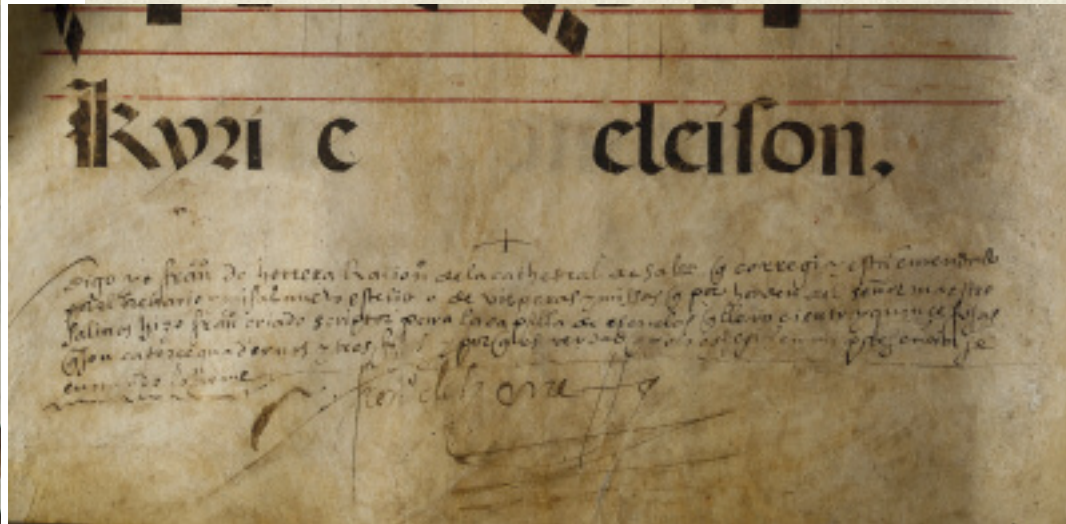 Kyri e eleison.
digo yo fran de herrera Raçion de la cathedral de Salᵃ q corregi y esta emendado
por el breviario y misal nuevo este libro de visperas y missas q por horden del señor maestro
salinas hizo fran criado scriptor para la capilla de escuelas q lleva ciento y quinze fojas
q son catorce quadernos y tres y por q es verdad
firme
fran de herrera